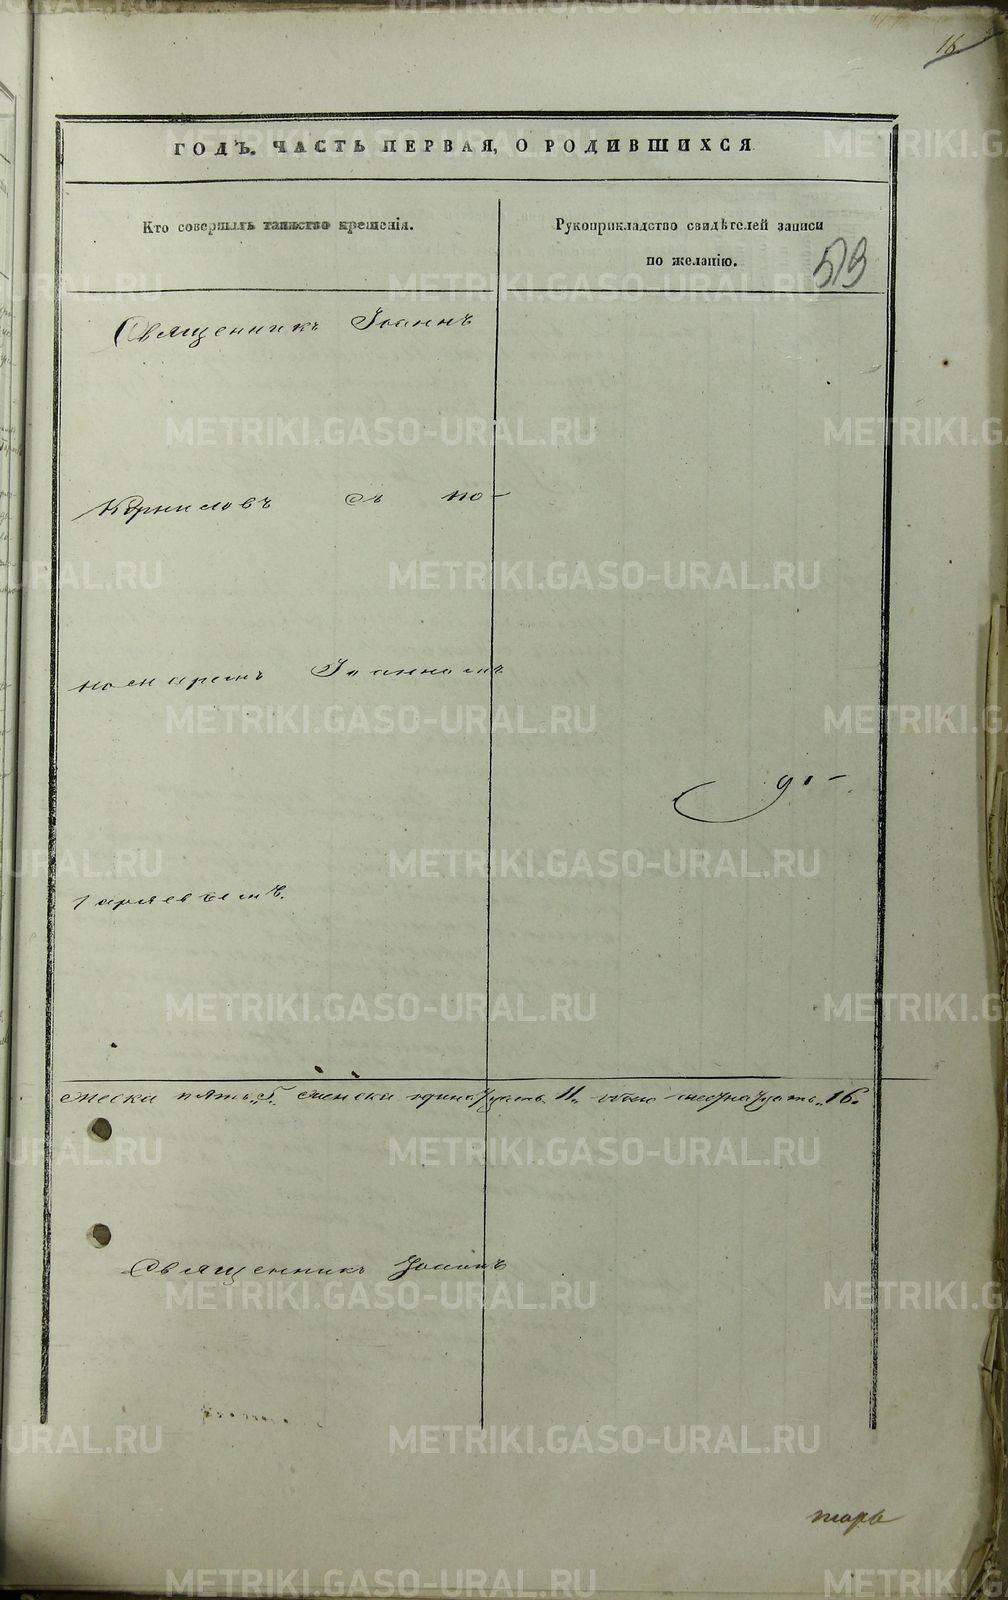 16
ГОДЪ. ЧАСТЬ ПЕРВАЯ, О РОДИВШИХСЯ
Кто совершалъ таинство крещенія.
Рукоприкладство свидѣтелей записи
по желанію.
59
Священникъ Іоаннъ
Корниловъ съ по-
номаремъ Іоанномъ
до-
Гаряевымъ.
мужеска пять „5„ женска одинадцать 11„ обоего шеснадцать „16.
Священникъ Іоаннъ
марь
METRIKI.GASO-URAL.RU